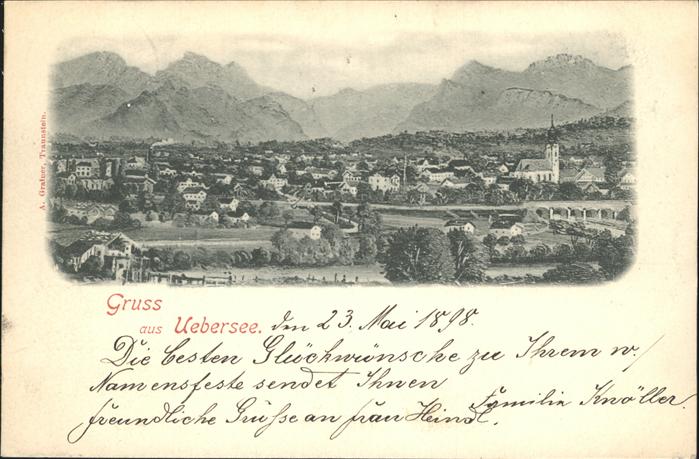 A. Grafner, Traunstein.
Gruss
aus Uebersee. den 23. Mai 1898.
Die besten Glückwünsche zu Ihrem w./
Namensfeste sendet Ihnen
Familie Knöller.
freundliche Grüsse an frau Heindl.